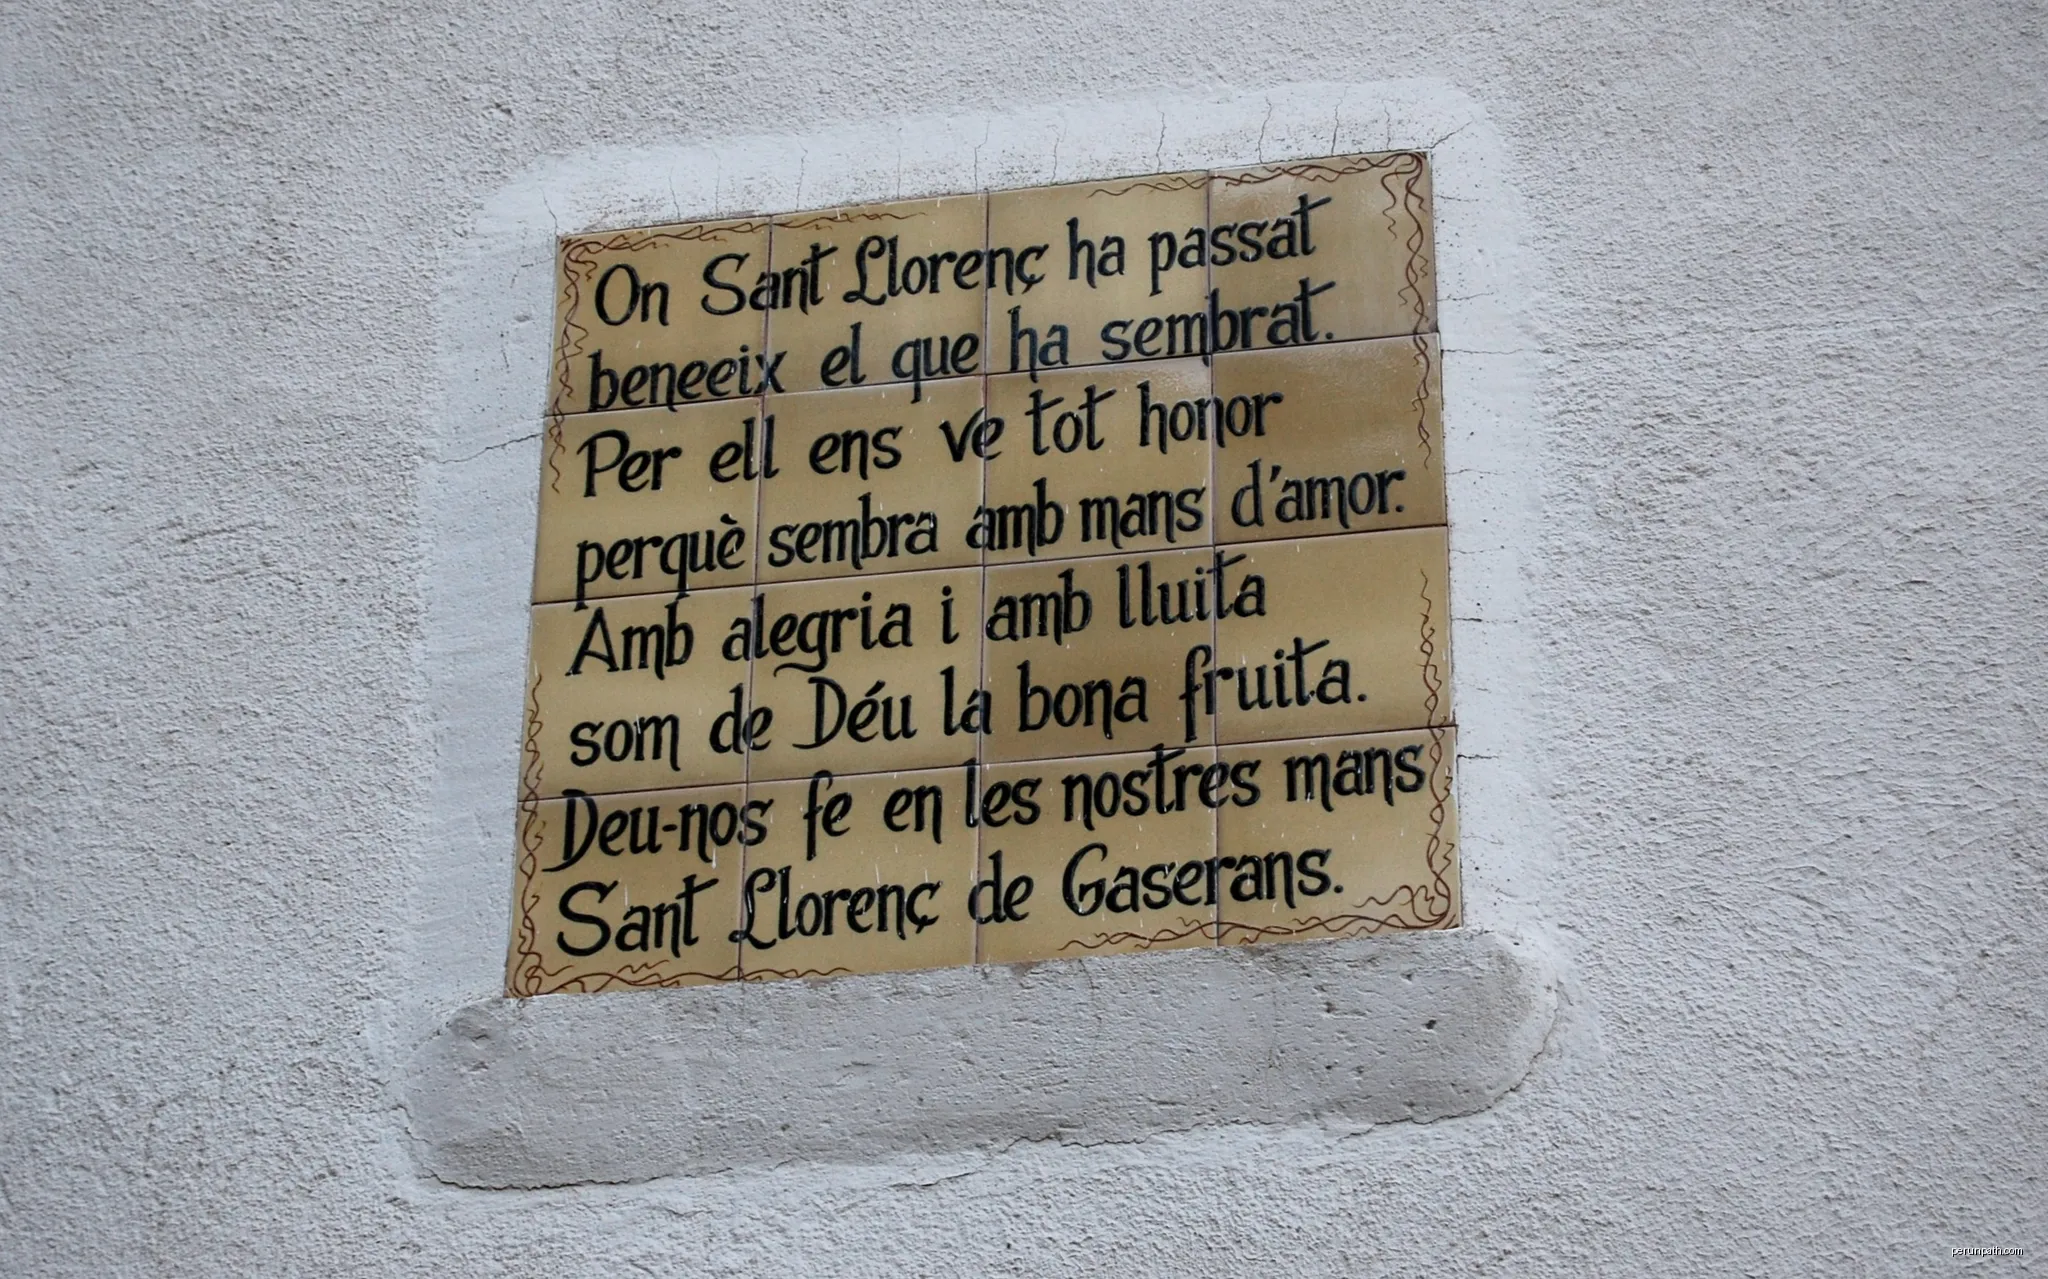 On Sant Llorenç ha passat
beneeix el que ha sembrat.
Per ell ens ve tot honor
perquè sembra amb mans d'amor.
Amb alegria i amb lluita
som de Déu la bona fruita.
Deu-nos fe en les nostres mans
Sant Llorenç de Gaserans.
perunpath.com